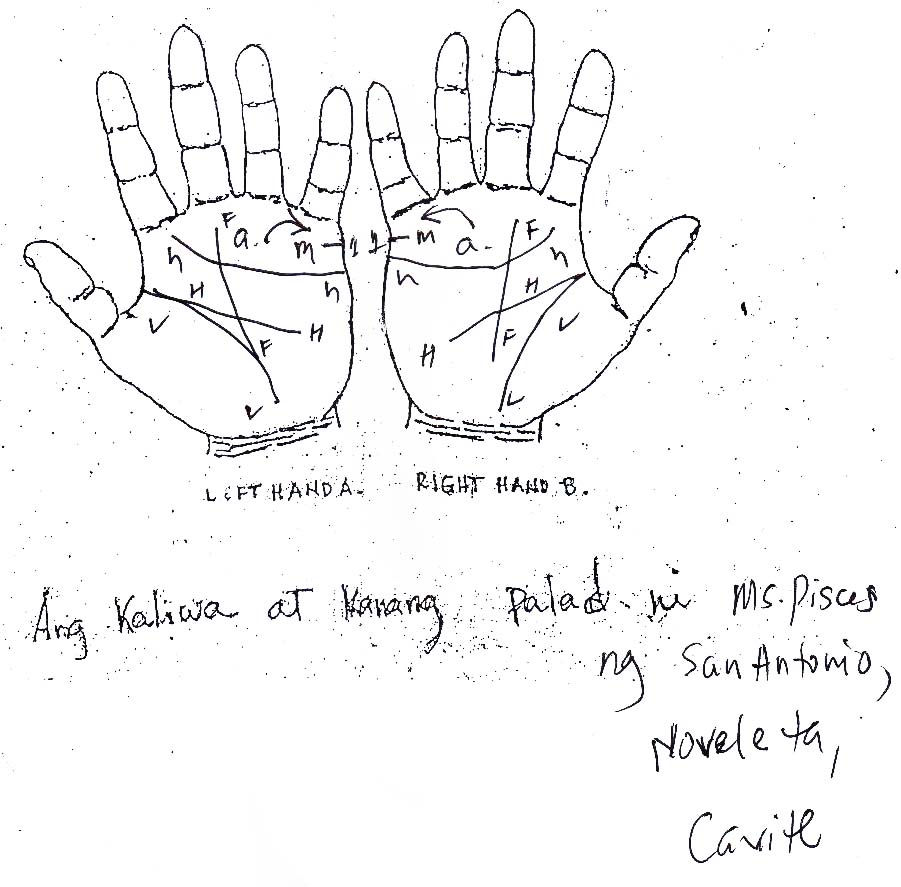 F F
a. m 1 1 m a.
h h h h
H H
L H H L
F F
L L
LEFT HAND A. RIGHT HAND B.
Ang Kaliwa at Kanang Palad ni Ms. Pisces
ng San Antonio,
Noveleta,
Cavite